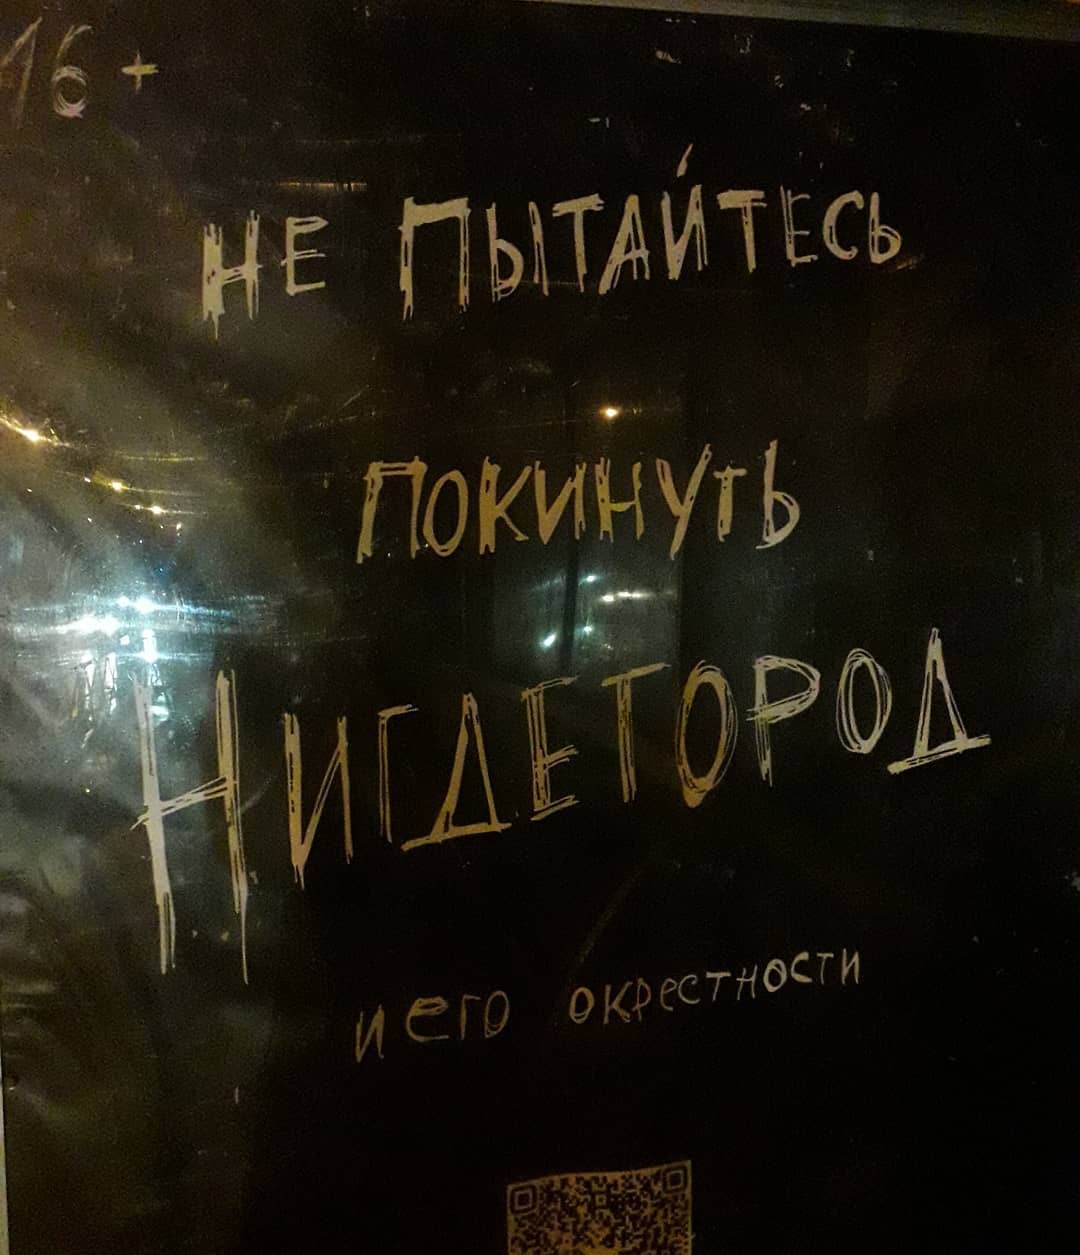 16+
Не ПЫТАЙТЕСЬ
ПОКИНУТЬ
НИГДЕГОРОД
и его окрестности